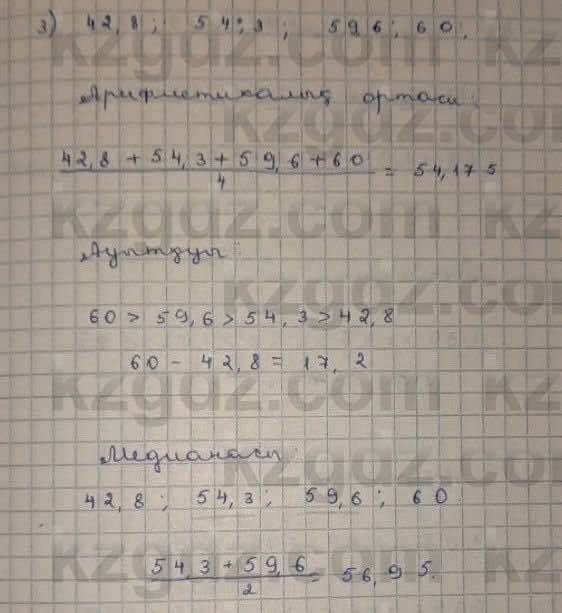 3) 42,8; 54,3; 59,6; 60.
Арифметикалық ортасы:
42,8 + 54,3 + 59,6 + 60 / 4 = 54,175
Ауытқуы:
60 > 59,6 > 54,3 > 42,8
60 - 42,8 = 17,2
Медианасы:
42,8; 54,3; 59,6; 60
54,3 + 59,6 / 2 = 56,95.
kzgdz.com